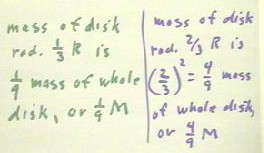 mass of disk
rad. 1/3 R is
1/9 mass of whole
disk, or 1/9 M
mass of disk
rad. 2/3 R is
(2/3)² = 4/9 mass
of whole disk,
or 4/9 M